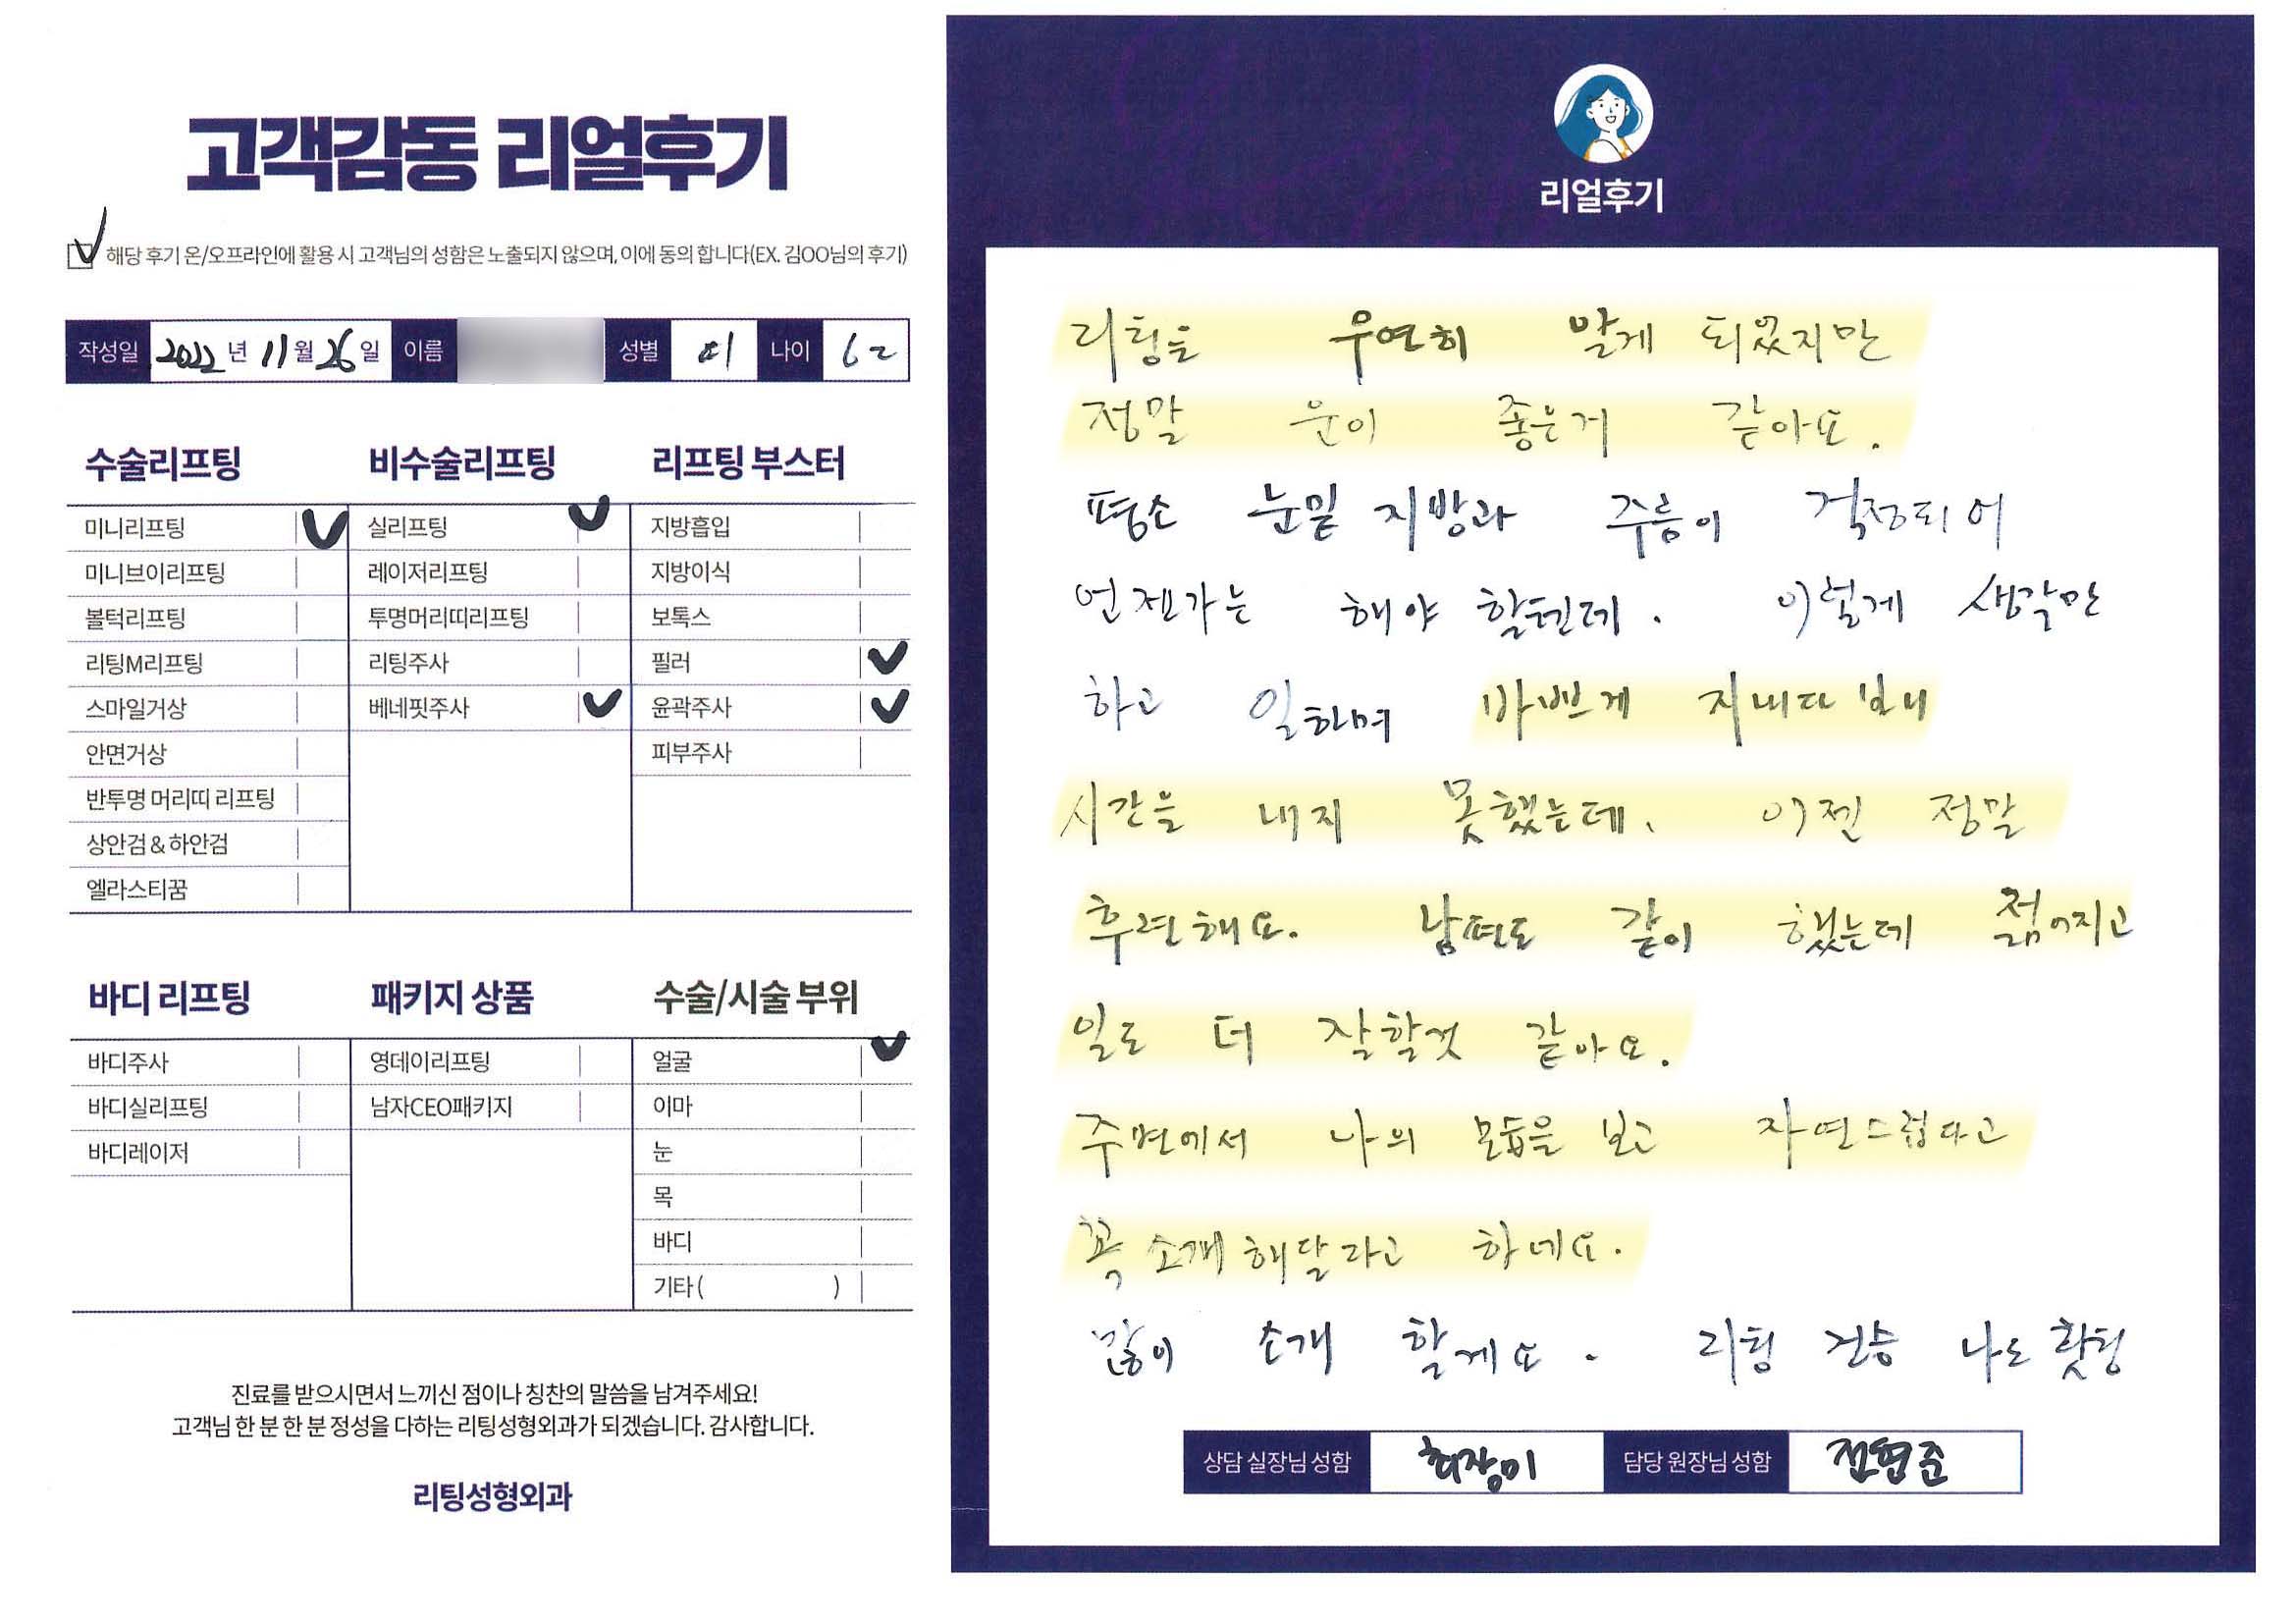 고객감동 리얼후기
해당 후기 온/오프라인에 활용 시 고객님의 성함은 노출되지 않으며, 이에 동의 합니다(EX. 김OO님의 후기)
작성일 2022 년 11 월 26 일 이름 성별 여 나이 62
수술리프팅
미니리프팅
미니브이리프팅
볼턱리프팅
리팅M리프팅
스마일거상
안면거상
반투명 머리띠 리프팅
상안검 & 하안검
엘라스티꿈
비수술리프팅
실리프팅
레이저리프팅
투명머리띠리프팅
리팅주사
베네핏주사
리프팅 부스터
지방흡입
지방이식
보톡스
필러
윤곽주사
피부주사
바디 리프팅
바디주사
바디실리프팅
바디레이저
패키지 상품
영데이리프팅
남자CEO패키지
수술/시술 부위
얼굴
이마
눈
목
바디
기타 ( )
진료를 받으시면서 느끼신 점이나 칭찬의 말씀을 남겨주세요!
고객님 한 분 한 분 정성을 다하는 리팅성형외과가 되겠습니다. 감사합니다.
리팅성형외과
리얼후기
리팅을 우연히 알게 되었지만
정말 운이 좋은거 같아요.
평소 눈밑 지방과 주름이 걱정되어
언젠가는 해야 할텐데. 이렇게 생각만
하고 일하며 바쁘게 지내다 보니
시간을 내지 못했는데. 이젠 정말
후련해요. 남편도 같이 했는데 젊어지고
일도 더 잘할것 같아요.
주변에서 나의 모습을 보고 자연스럽다고
꼭 소개해달라고 하네요.
많이 소개 할게요. 리팅 건승 나도 홧팅
상담 실장님 성함 최장미 담당 원장님 성함 전형준